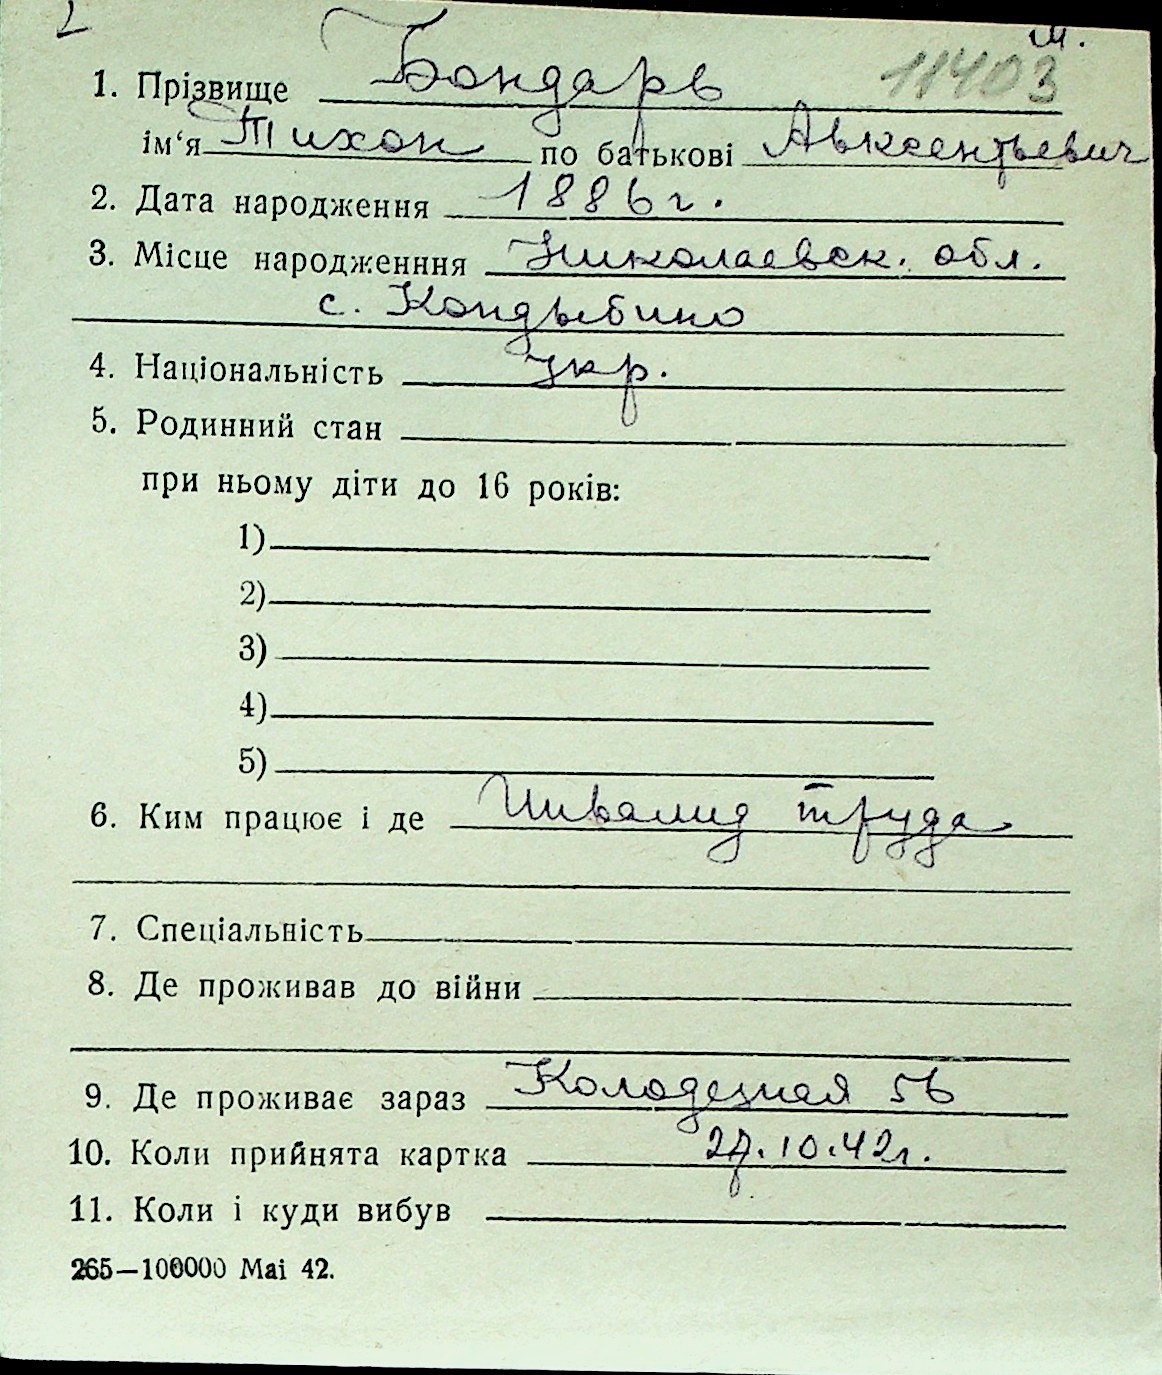 м.
11403
1. Прізвище Бондарь
ім‘я Тихон по батькові Авксентьевич
2. Дата народження 1886 г.
3. Місце народженння Николаевск. обл.
с. Кондыбино
4. Національність укр.
5. Родинний стан
при ньому діти до 16 років:
1)
2)
3)
4)
5)
6. Ким працює і де Инвалид труда
7. Спеціальність
8. Де проживав до війни
9. Де проживає зараз Колодезная 56
10. Коли прийнята картка 27.10.42 г.
11. Коли і куди вибув
265—100000 Mai 42.